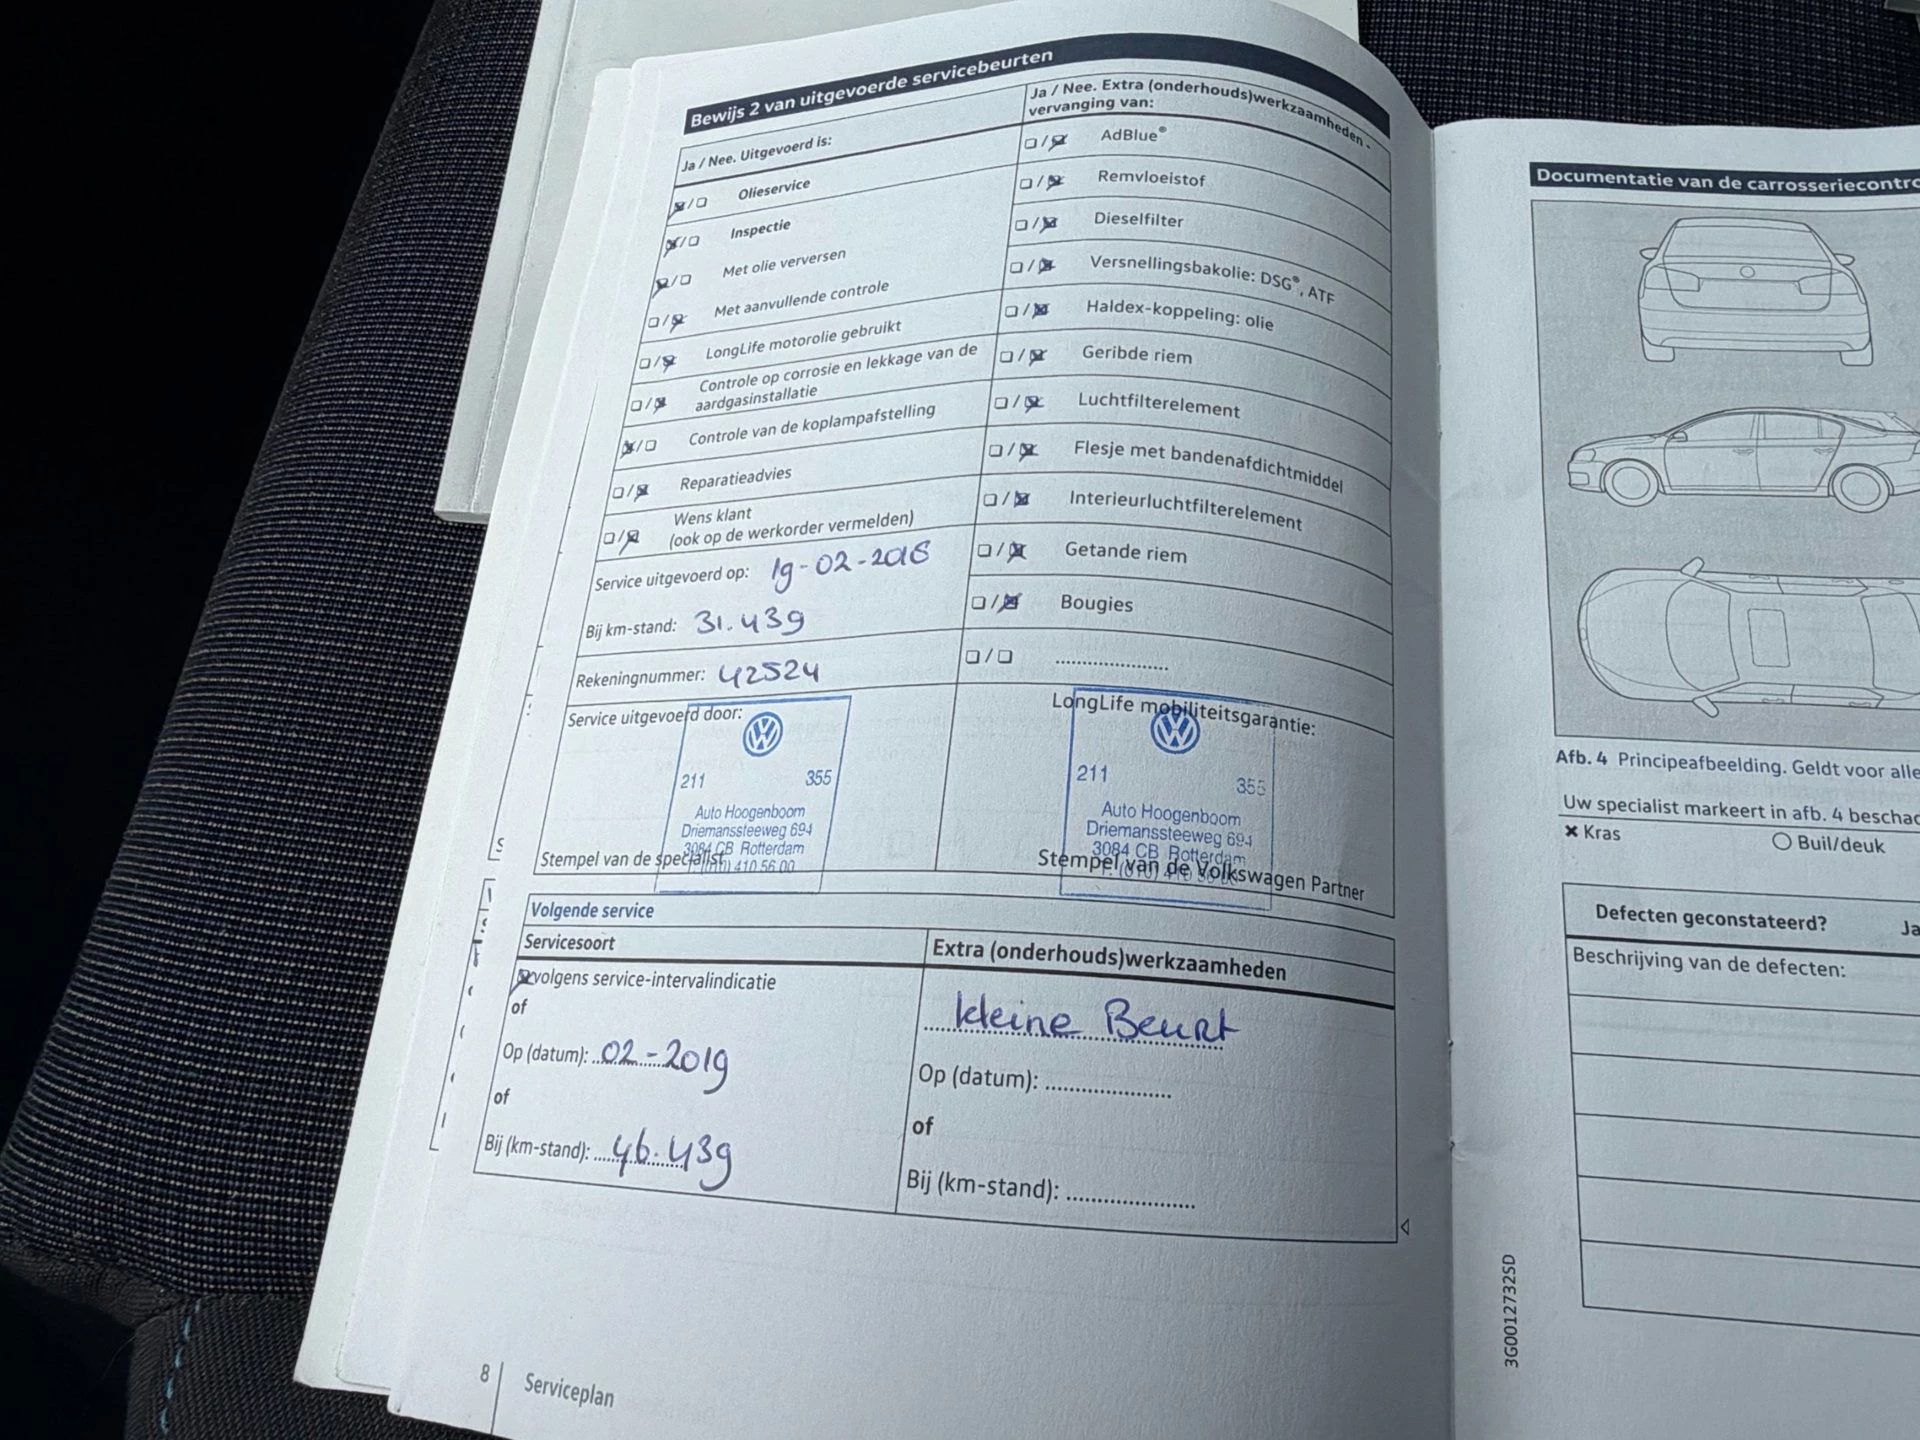 Bewijs 2 van uitgevoerde servicebeurten
Ja / Nee. Uitgevoerd is:
Olieservice
Inspectie
Met olie verversen
Met aanvullende controle
LongLife motorolie gebruikt
Controle op corrosie en lekkage van de
aardgasinstallatie
Controle van de koplampafstelling
Reparatieadvies
Wens klant
(ook op de werkorder vermelden)
Service uitgevoerd op: 19-02-2018
Bij km-stand: 31.439
Rekeningnummer: 42524
Service uitgevoerd door:
211 355
Auto Hoogenboom
Driemanssteeweg 694
3084 CB Rotterdam
T. (010) 410 56 00
Stempel van de specialist
Ja / Nee. Extra (onderhouds)werkzaamheden -
vervanging van:
AdBlue®
Remvloeistof
Dieselfilter
Versnellingsbakolie: DSG®, ATF
Haldex-koppeling: olie
Geribde riem
Luchtfilterelement
Flesje met bandenafdichtmiddel
Interieurluchtfilterelement
Getande riem
Bougies
LongLife mobiliteitsgarantie:
211 355
Auto Hoogenboom
Driemanssteeweg 694
3084 CB Rotterdam
Stempel van de Volkswagen Partner
Volgende service
Servicesoort
volgens service-intervalindicatie
of
Op (datum): 02-2019
of
Bij (km-stand): 46.439
Extra (onderhouds)werkzaamheden
kleine Beurt
Op (datum):
of
Bij (km-stand):
8 Serviceplan
Documentatie van de carrosseriecontro
Afb. 4 Principeafbeelding. Geldt voor alle
Uw specialist markeert in afb. 4 beschad
Kras Buil/deuk
Defecten geconstateerd? Ja
Beschrijving van de defecten:
3G0012732SD